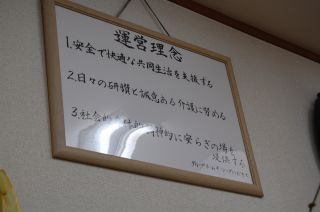 運営理念
1.安全で快適な共同生活を支援する
2.日々の研鑽と誠意ある介護に努める
3.社会的 精神的に安らぎの場を
提供する